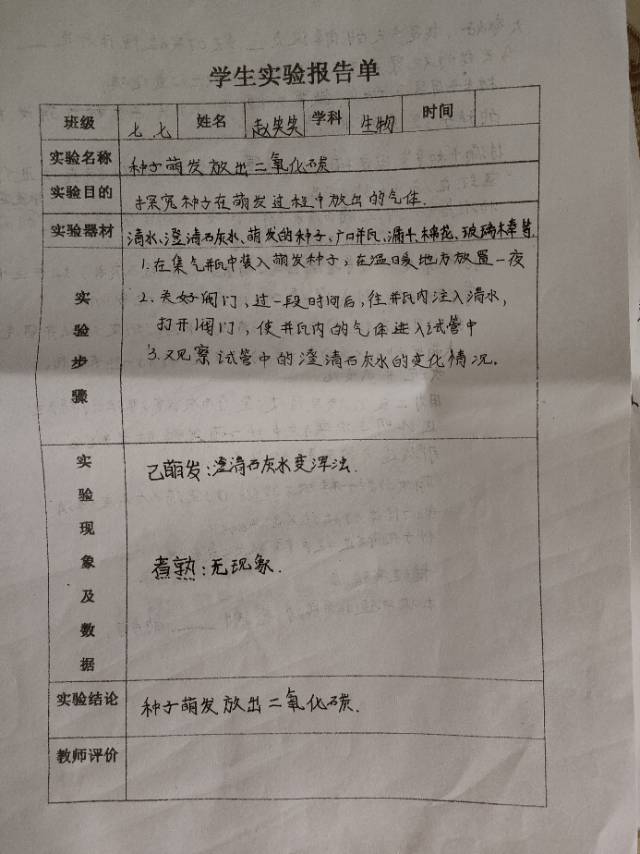 学生实验报告单
班级 七 七 姓名 赵笑笑 学科 生物 时间
实验名称 种子萌发放出二氧化碳
实验目的 探究种子在萌发过程中放出的气体.
实验器材 清水、澄清石灰水、萌发的种子、广口瓶、漏斗、棉花、玻璃棒等.
实验步骤
1.在集气瓶中装入萌发种子,在温暖地方放置一夜
2、关好阀门,过一段时间后,往瓶内注入清水,
打开阀门,使瓶内的气体进入试管中
3.观察试管中的澄清石灰水的变化情况.
实验现象及数据
已萌发:澄清石灰水变浑浊.
煮熟:无现象.
实验结论 种子萌发放出二氧化碳.
教师评价